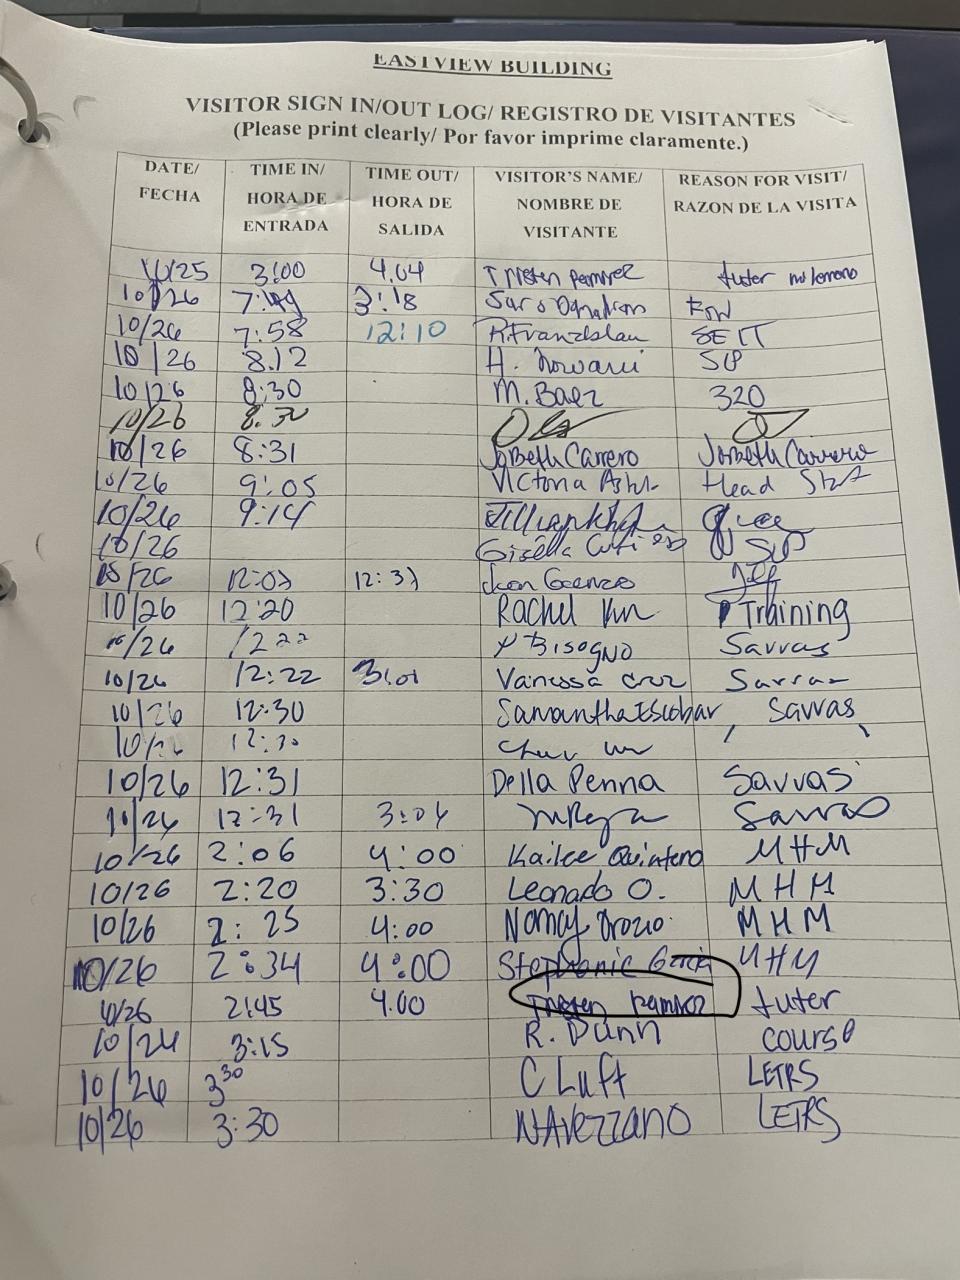 EASTVIEW BUILDING
VISITOR SIGN IN/OUT LOG/ REGISTRO DE VISITANTES
(Please print clearly/ Por favor imprime claramente.)
DATE/ FECHA TIME IN/ HORA DE ENTRADA TIME OUT/ HORA DE SALIDA VISITOR'S NAME/ NOMBRE DE VISITANTE REASON FOR VISIT/ RAZON DE LA VISITA
10/25 3:00 4.04 Tristen Ramirez tuter
10/26 7:49 3:18
10/26 7:58 12:10 SEIT
10/26 8.12 H.
10/26 8:30 M. Baez 320
10/26 8:30
10/26 8:31 Josbeth Carrero Josbeth Carrero
10/26 9:05 Victoria Head
10/26 9:14
10/26 Gisella
10/26 12:37
10/26 12:20 Rachel Training
10/26 1222 Bisogno Savvas
10/26 12:22 3:01 Vanessa Cruz Savvas
10/26 12:30 Samantha Escobar Savvas
10/26 12:30
10/26 12:31 Della Penna Savvas
10/26 12:31 3:04 Savvas
10/26 2:06 4:00 Kailee Quintero MHM
10/26 2:20 3:30 Leonado O. MHM
10/26 2:25 4:00 Nancy Orozio MHM
10/26 2:34 4:00 Stephanie MHM
10/26 2:45 4.00 Tristen Ramirez tuter
10/24 3:15 R. Dunn course
10/26 3:30 C Luft LETRS
10/26 3:30 N Avezzano LETRS